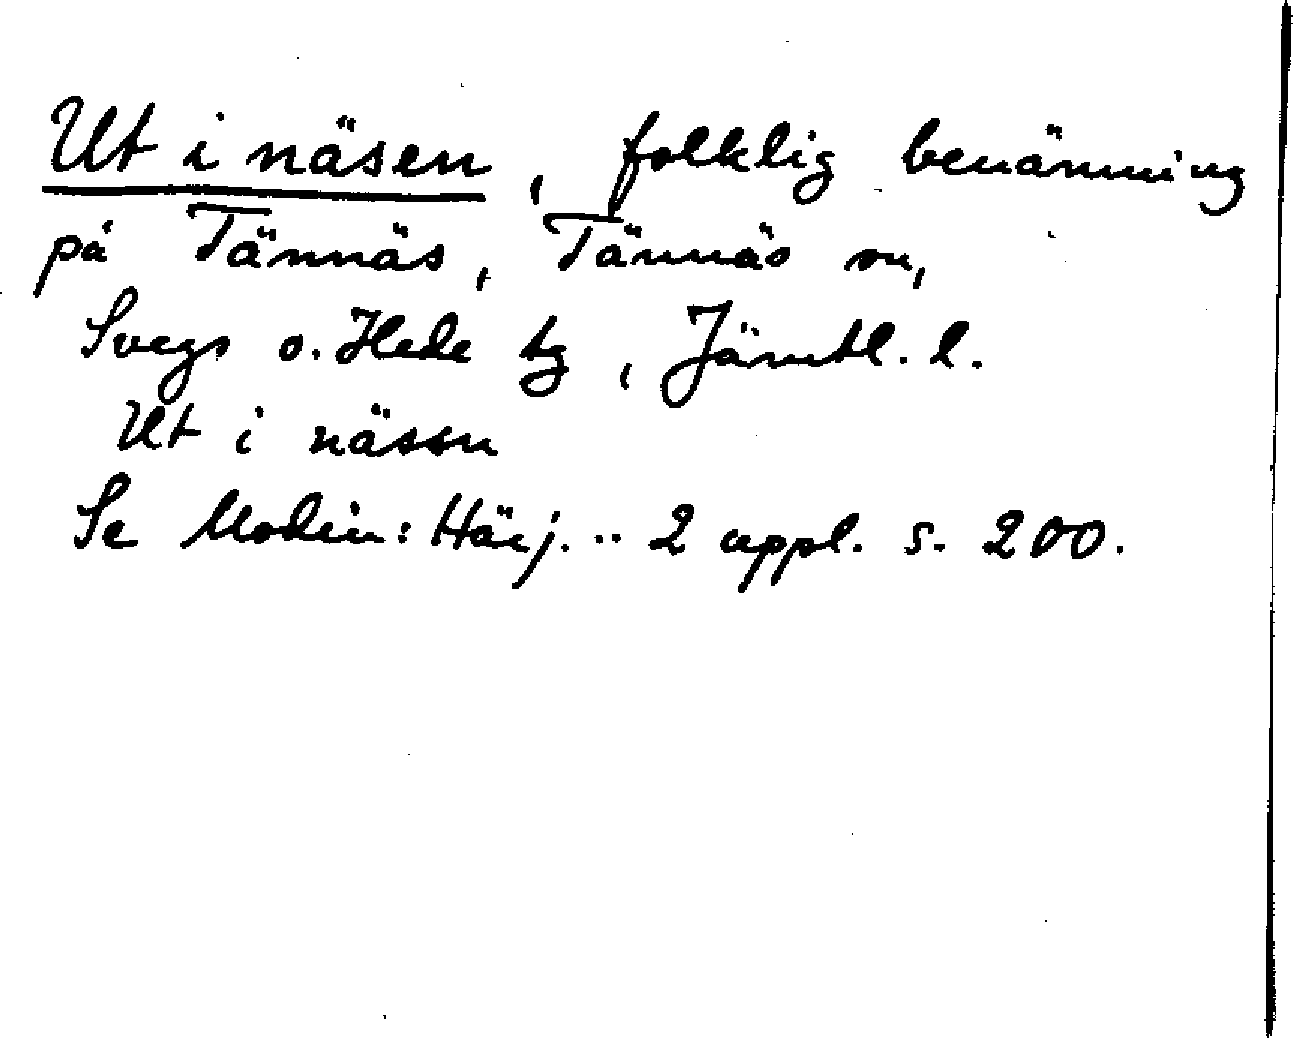 Ut i näsen, folklig benämning
på Tännäs, Tännäs sn,
Svegs o. Hede tg, Jämtl. l.
Ut i nässn
Se Modin: Härj. .. 2 uppl. s. 200.